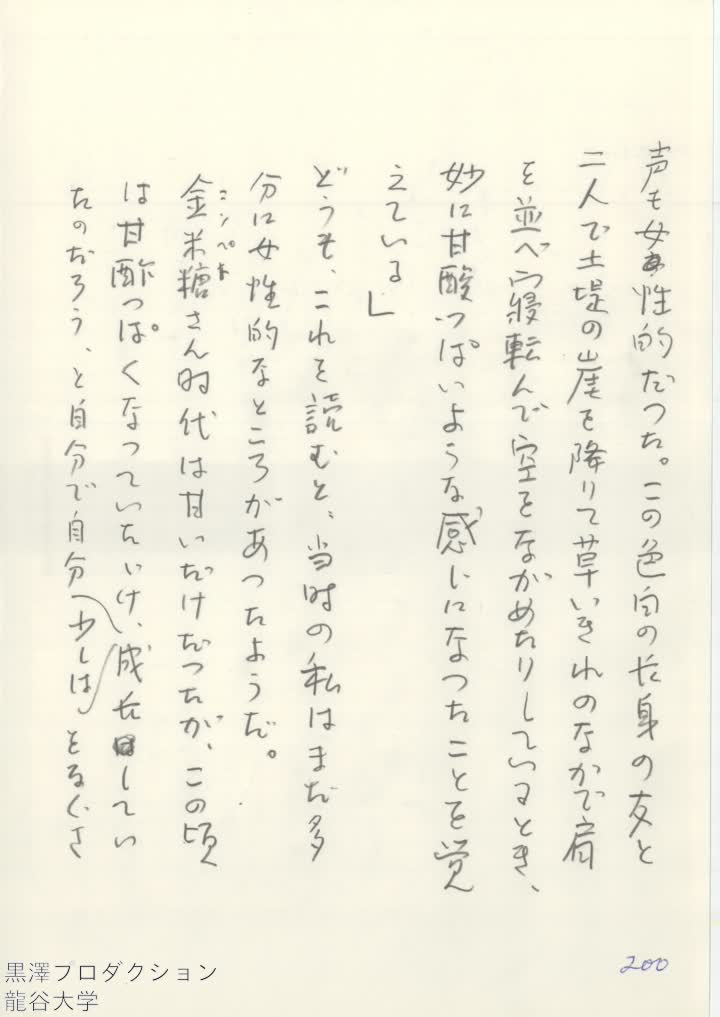 声も女性的だつた。この色白の長身の友と
二人で土堤の崖を降りて草いきれのなかで肩
を並べ寝転んで空をながめたりしているとき、
妙に甘酸っぱいような感じになつたことを覚
えている」
どうも、これを読むと、当時の私はまだ多
分に女性的なところがあつたようだ。
金米糖さん時代は甘いだけだつたが、この頃
コンペト
は甘酢っぱくなつていただけ、少しは成長してい
たのだろう、と自分で自分をなぐさ
200
黒澤プロダクション
龍谷大学